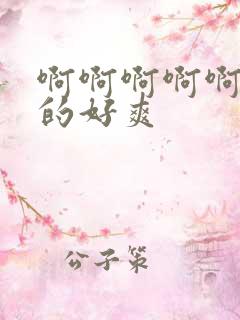 啊啊啊啊啊
的好爽
公子策